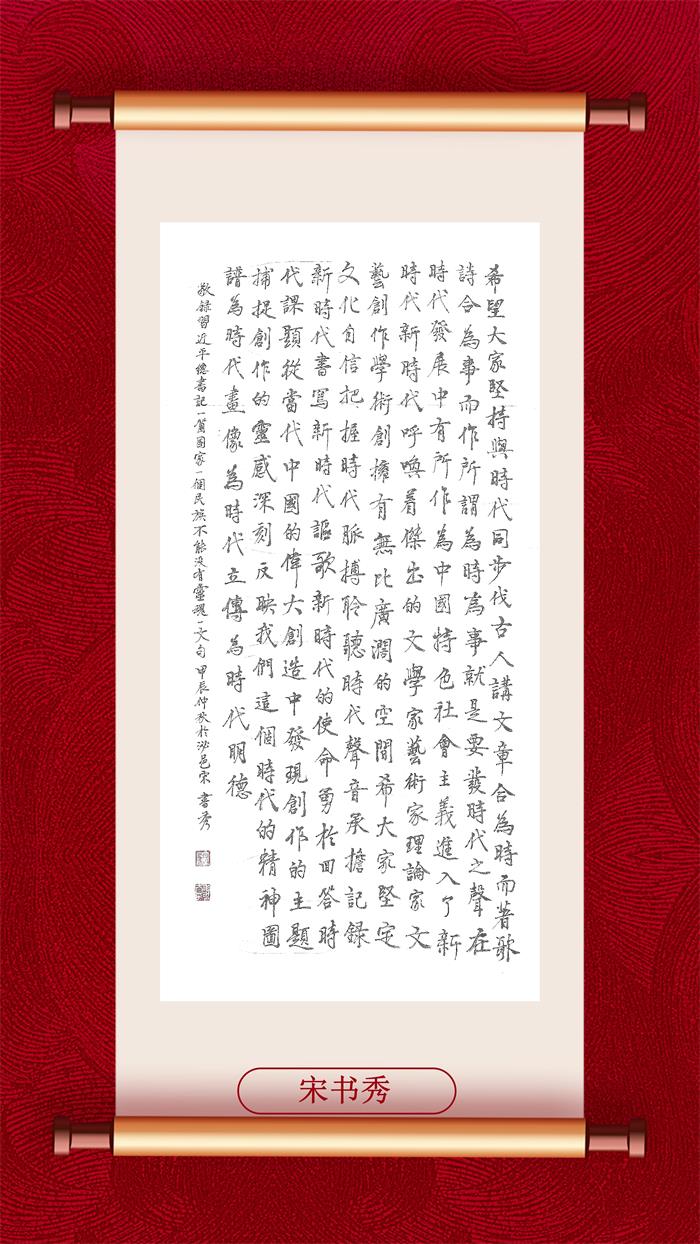 希望大家堅持與時代同步伐古人講文章合為時而著歌
詩合為事而作所謂為時為事就是要發時代之聲在
時代發展中有所作為中國特色社會主義進入了新
時代新時代呼喚着傑出的文學家藝術家理論家文
藝創作學術創擁有無比廣濶的空間希大家堅定
文化自信把握時代脈搏聆聽時代聲音承擔記録
新時代書寫新時代謳歌新時代的使命勇於回答時
代課題從當代中國的偉大創造中發現創作的主題
捕捉創作的靈感深刻反映我們這個時代的精神圖
譜為時代畫像為時代立傳為時代明德
敬録習近平總書記一篇國家一個民族不能没有靈魂一文句甲辰仲秋於泌邑宋書秀
宋书秀